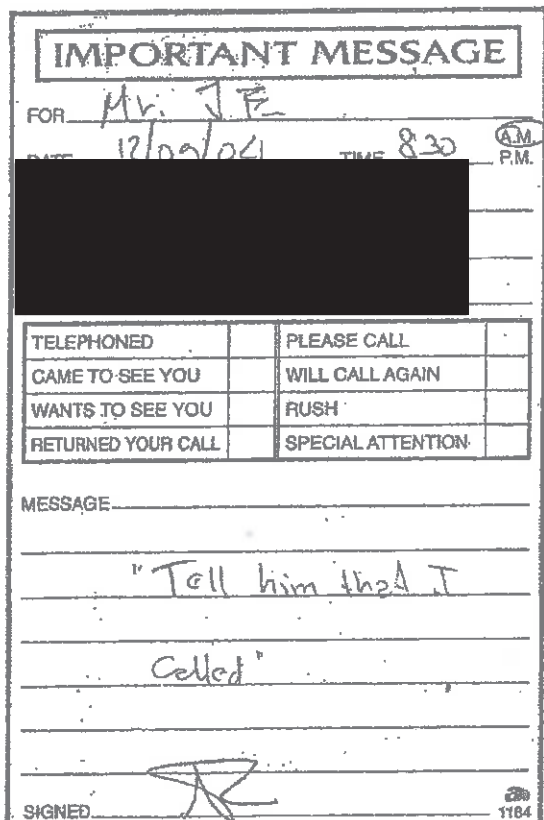 IMPORTANT MESSAGE
FOR Mr. J E
DATE 12/09/04 TIME 8:30 A.M.
P.M.
TELEPHONED PLEASE CALL
CAME TO SEE YOU WILL CALL AGAIN
WANTS TO SEE YOU RUSH
RETURNED YOUR CALL SPECIAL ATTENTION
MESSAGE
"Tell him that I
Called"
SIGNED
1184